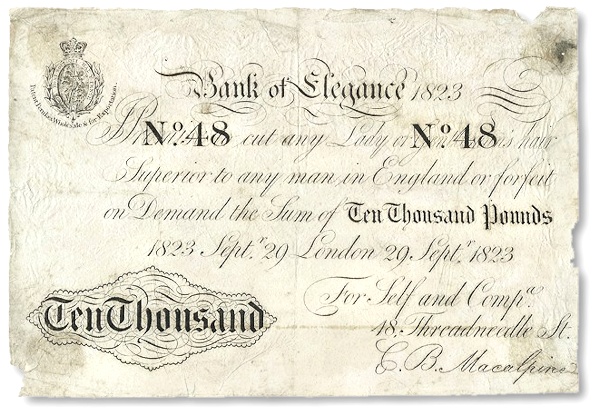 Bank of Elegance 1823
Patent Fendor Wholesale & for Exportation.
I P No. 48 cut any Lady or No. 48 's hair
Superior to any man in England or forfeit
on Demand the Sum of Ten Thousand Pounds
1823 Septr. 29 London 29 Septr. 1823
For Self and Compa.
Ten Thousand
48. Threadneedle St.
C. B. Macalpine